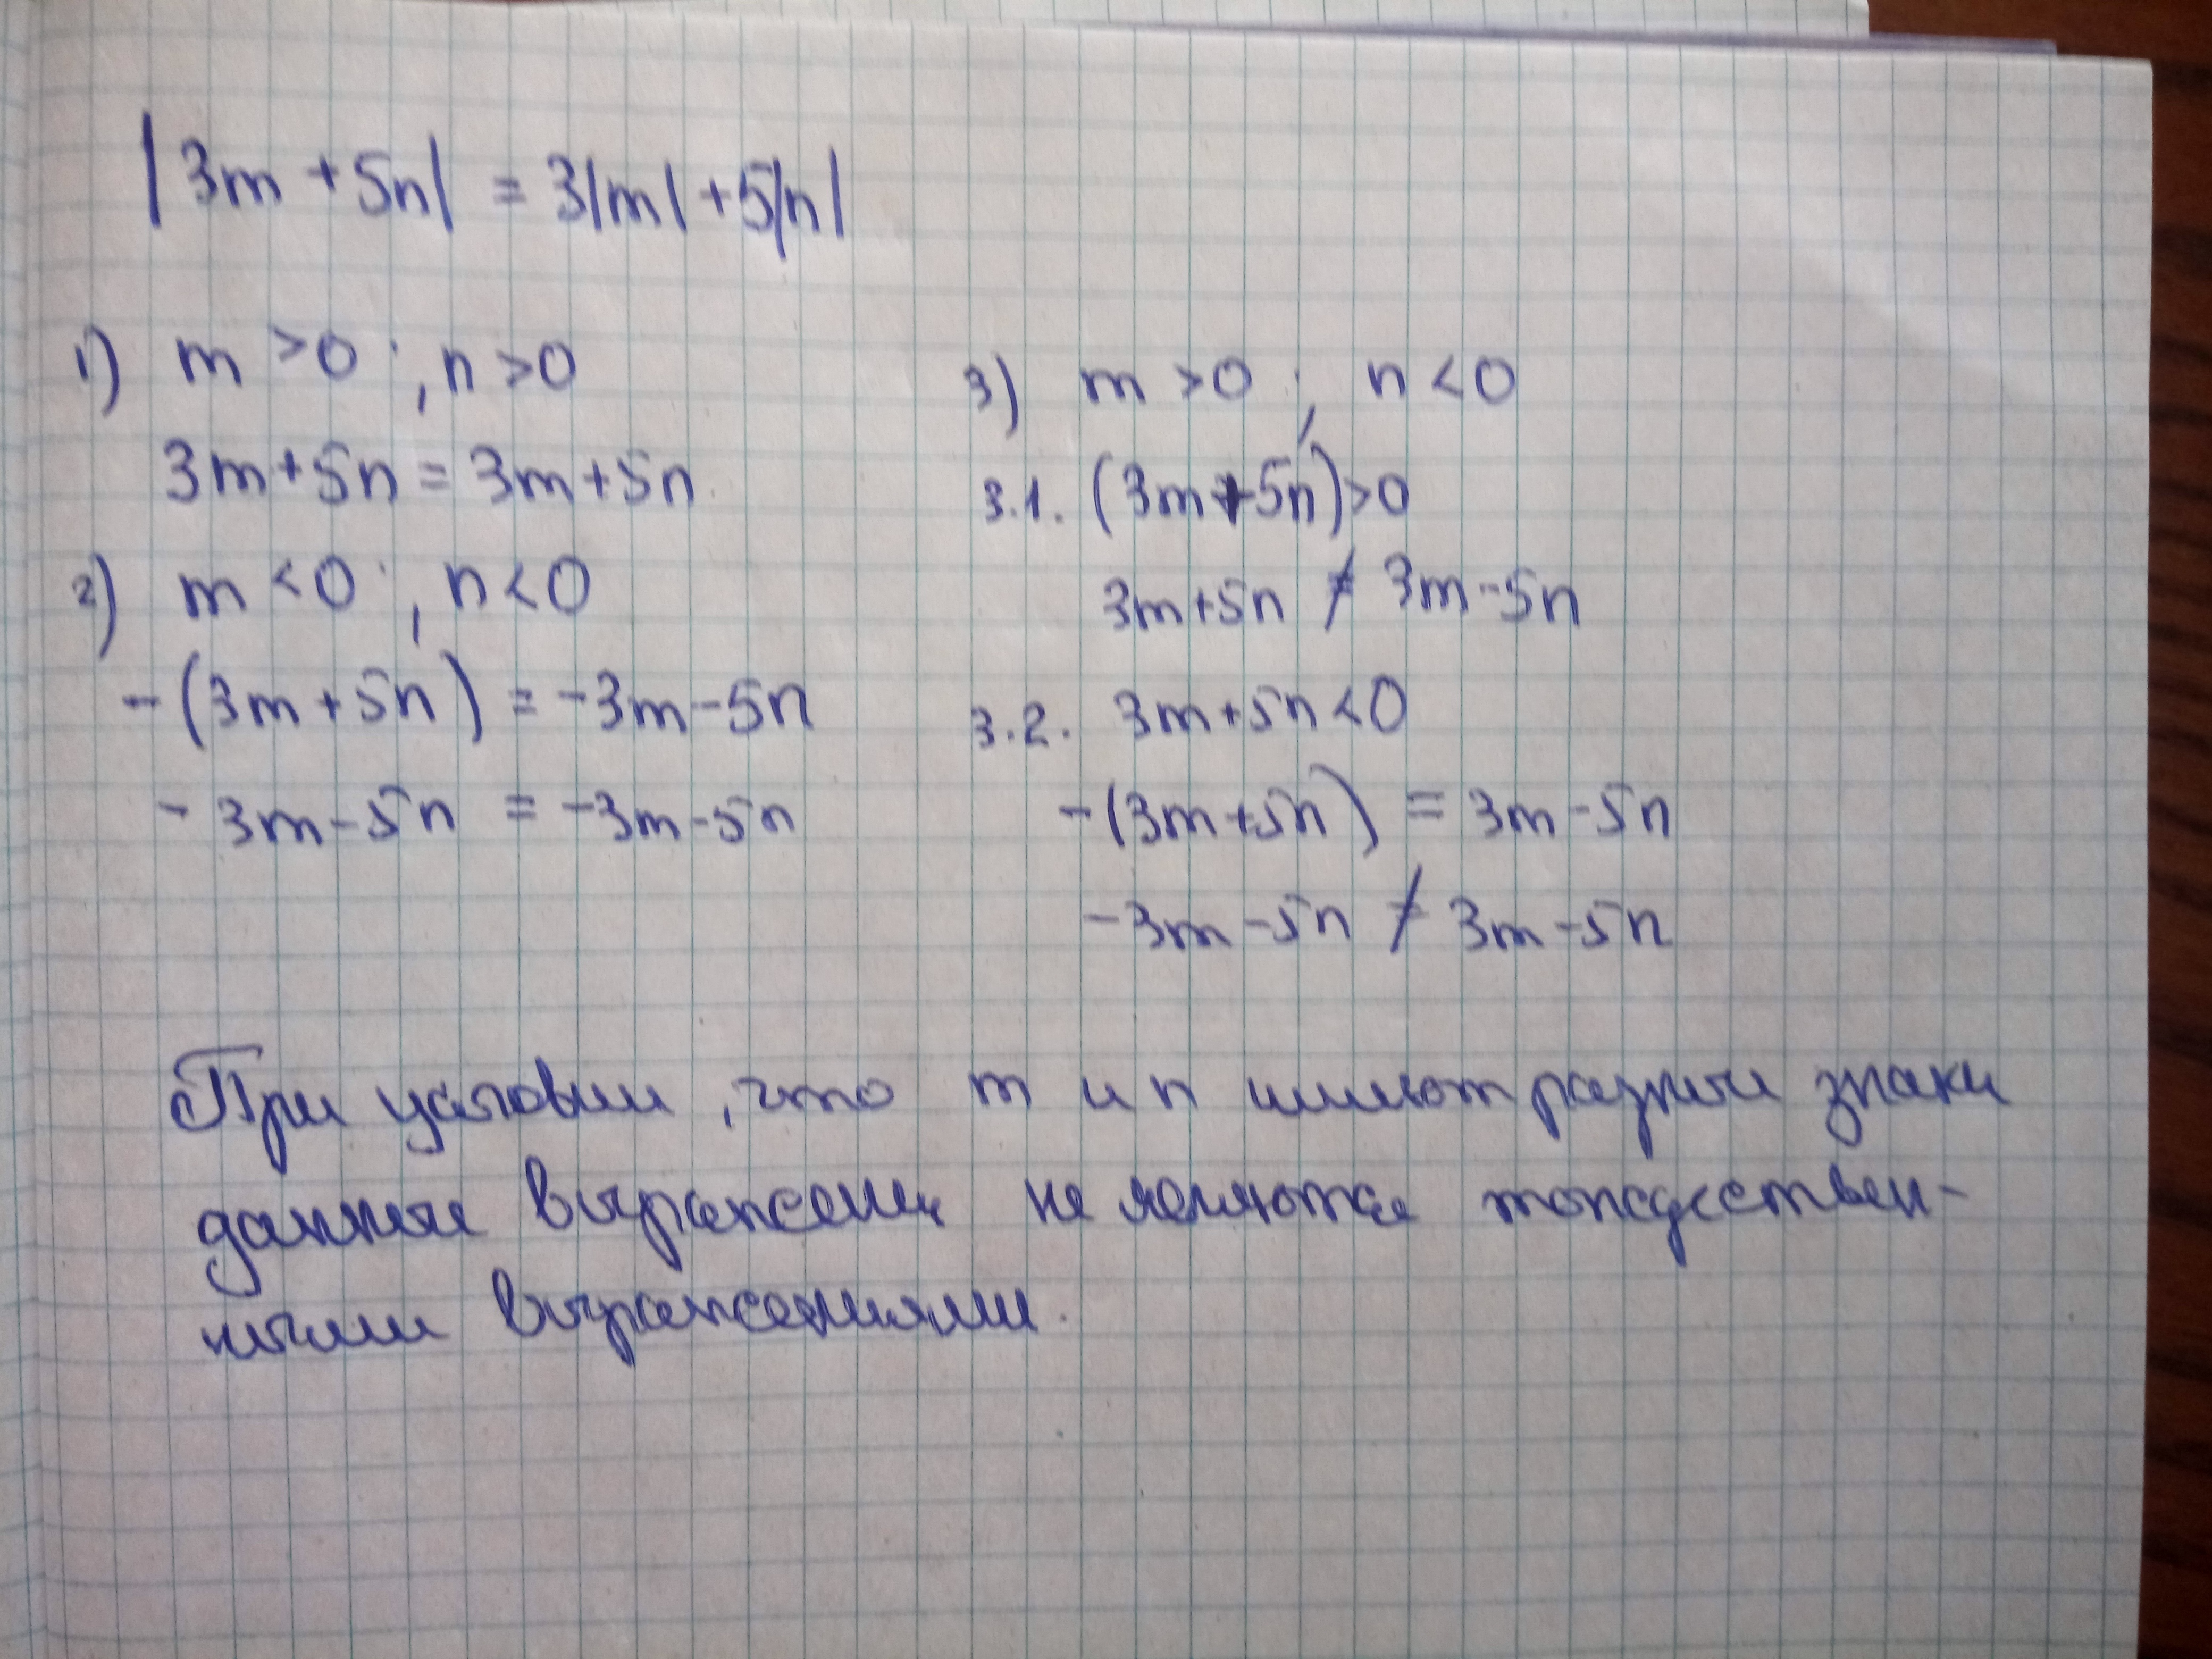 |3m + 5n| = 3|m| + 5|n|
1) m > 0 ; n > 0
3m + 5n = 3m + 5n
2) m < 0 ; n < 0
-(3m + 5n) = -3m - 5n
-3m - 5n = -3m - 5n
3) m > 0 ; n < 0
3.1. (3m + 5n) > 0
3m + 5n ≠ 3m - 5n
3.2. 3m + 5n < 0
-(3m + 5n) = 3m - 5n
-3m - 5n ≠ 3m - 5n
При условии, что m и n имеют разные знаки
данные выражения не являются тождествен-
ными выражениями.